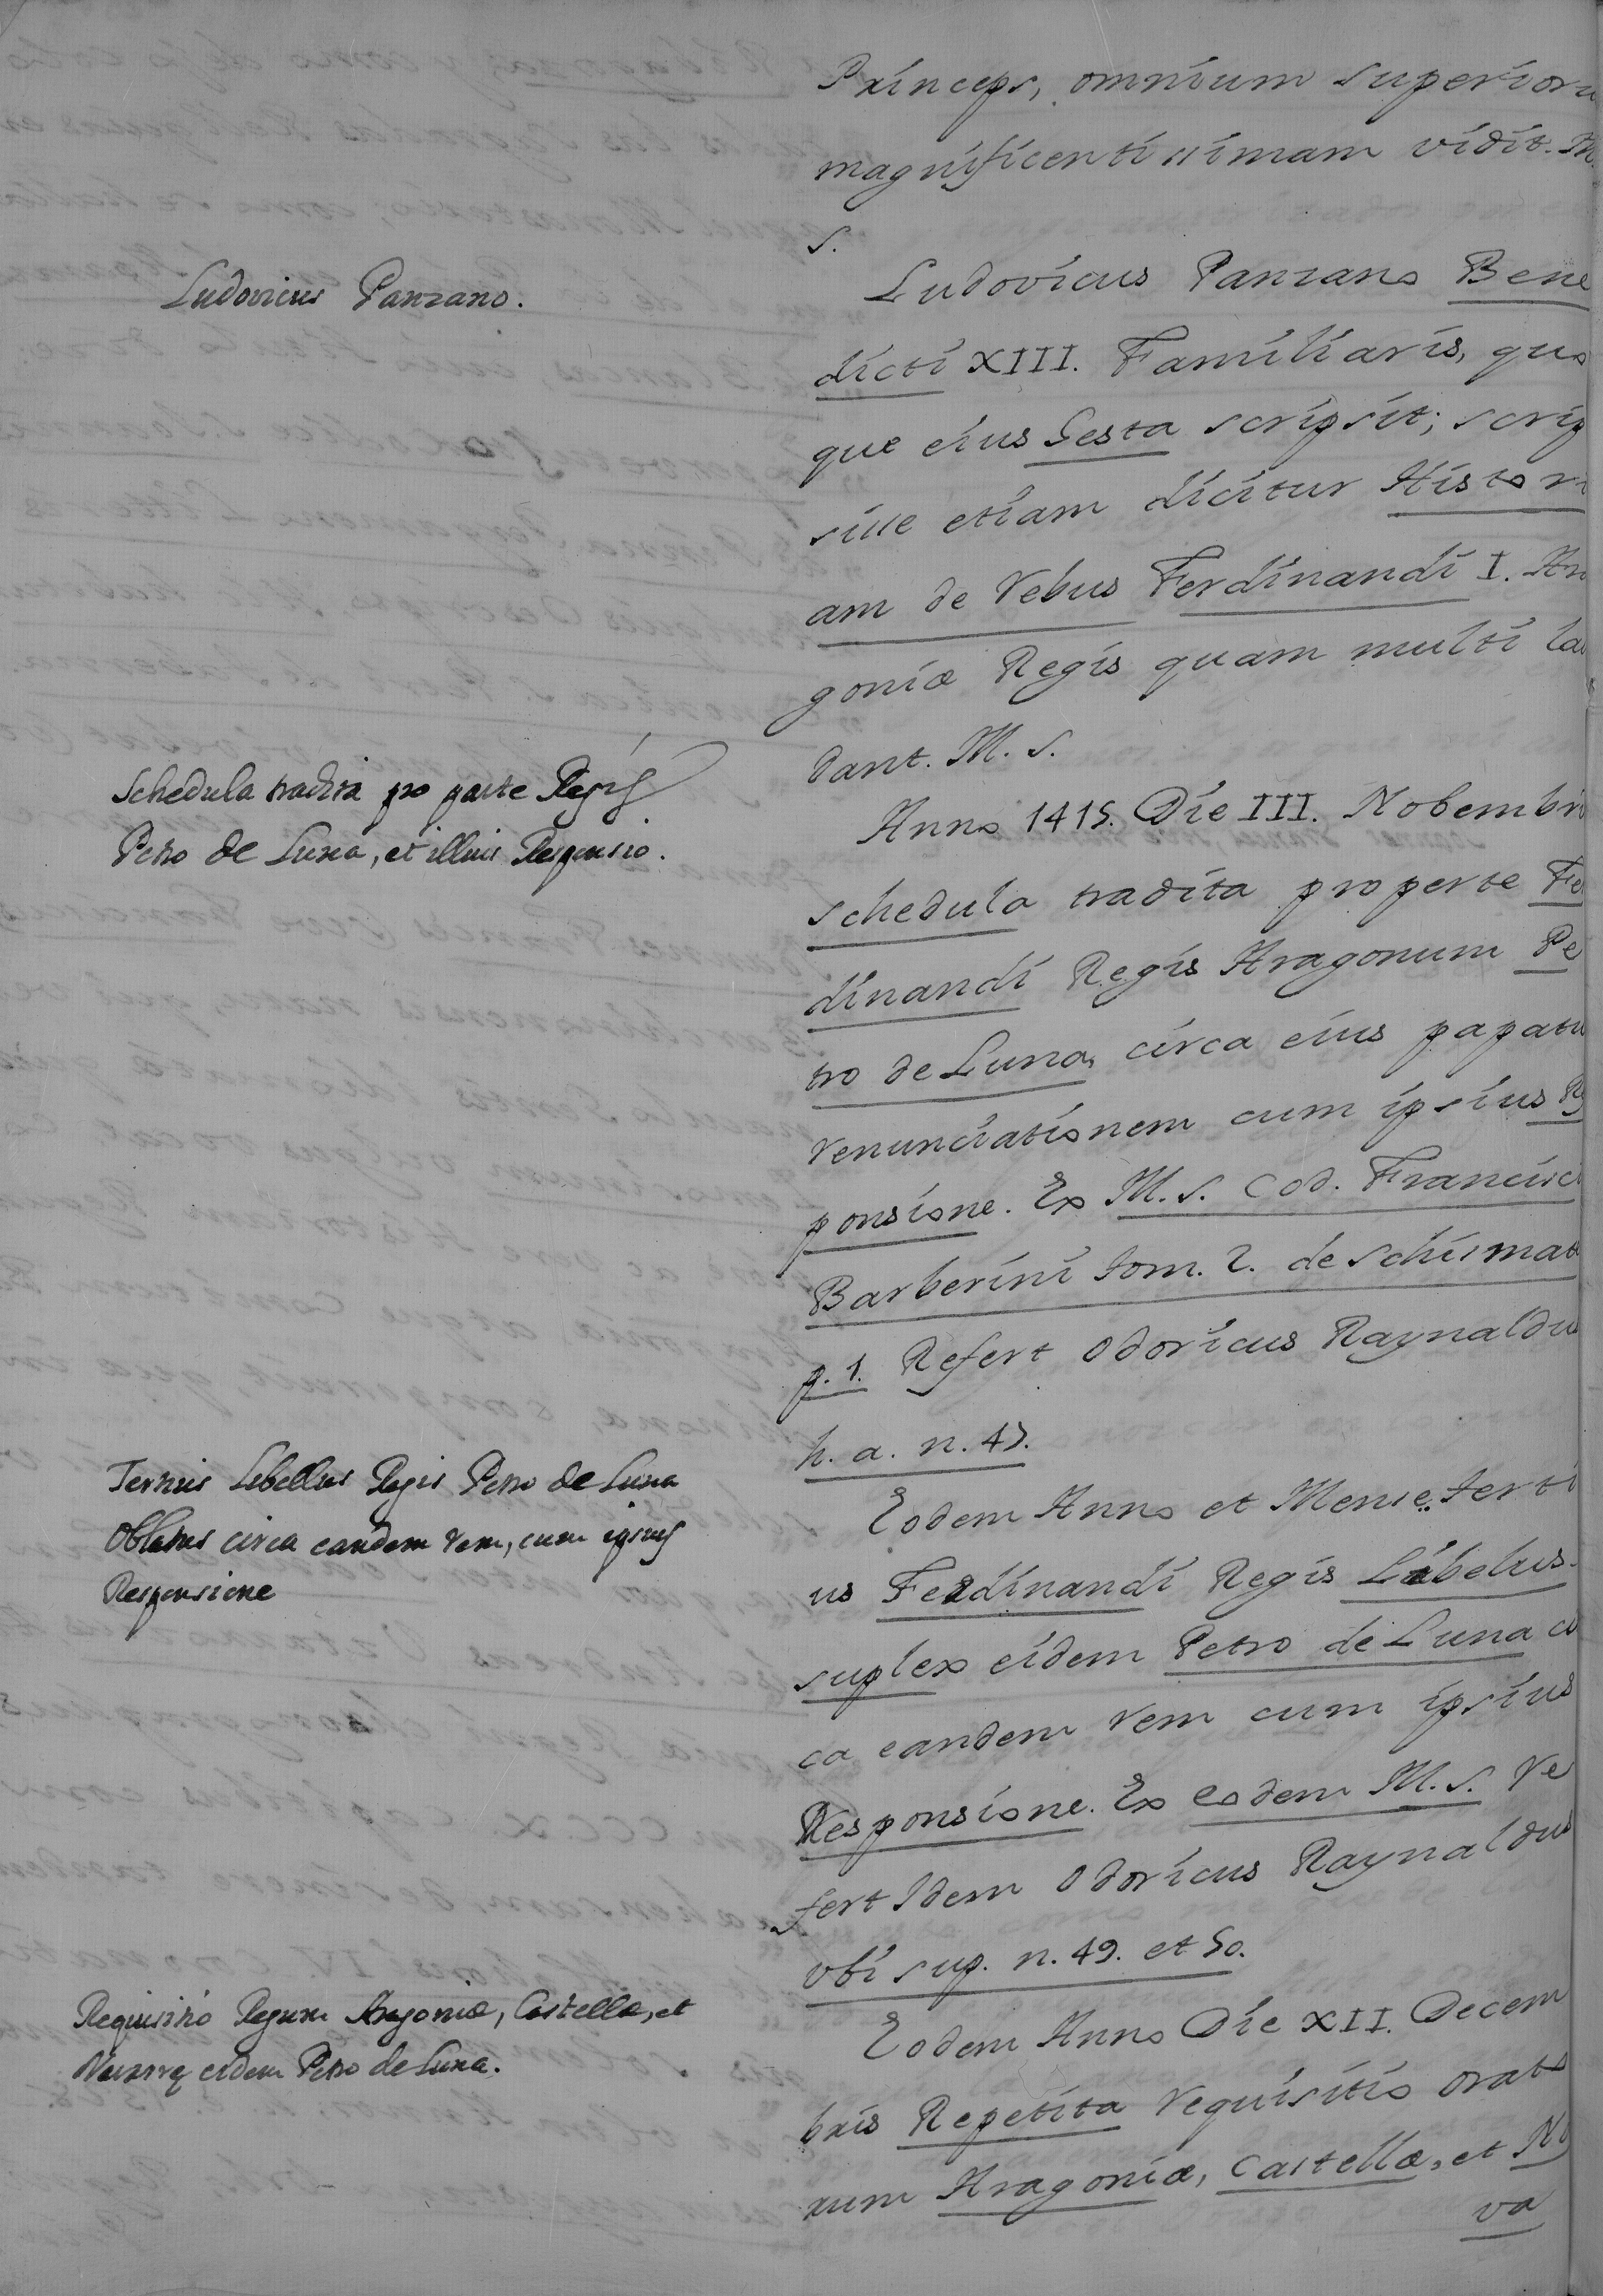 Princeps, omnium superioru
magnificentissimam vidit. M.
S.
Ludovicus Panzano.
Ludovicus Panzano Bene
dicti XIII. Familiaris, quo
que eius Gesta scripsit; scrip
sisse etiam dicitur Histori
am de rebus Ferdinandi I. Ara
goniæ Regis quam multi lau
dant. M. S.
Schedula tradita pro parte Regis
Petro de Luna, et illius Responsio.
Anno 1415. Die III. Nobembri
schedula tradita pro perte Fe
dinandi Regis Aragonum Pe
tro de Luna, circa eius papatu
renunciationem cum ipsius Res
ponsione. Ex M. S. Cod. Francisci
Barberini tom. 2. de Schismat
p. 1. Refert Odoricus Raynaldu
h. a. n. 47.
Tertius Libellus Regis Petro de Luna
Oblatus circa eandem rem, cum ipsius
Responsione
Eodem Anno et Mense terti
us Ferdinandi Regis Libelus
suplex eidem Petro de Luna ci
ca eandem rem cum ipsius
Responsione. Ex eodem M. S. re
fert Idem Odoricus Raynaldus
vbi sup. n. 49. et 50.
Requisitio Regum Aragoniæ, Castellæ, et
Navarrę eidem Petro de Luna.
Eodem Anno Die XII. Decem
bris Repetita requisitio orato
rum Aragoniæ, Castellæ, et Na
va